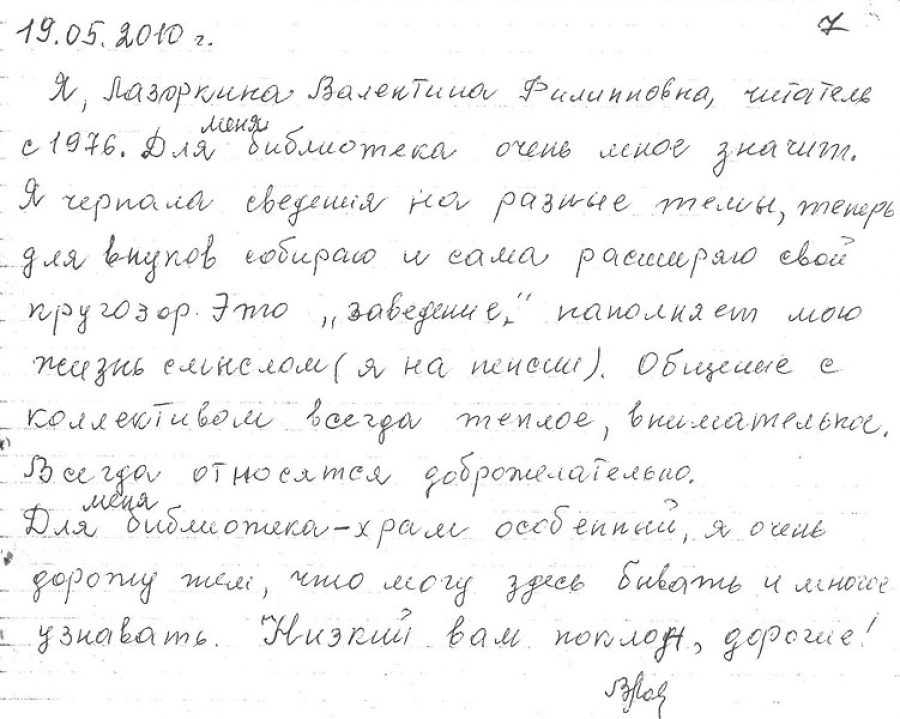 19.05.2010 г. 7
Я, Лазоркина Валентина Филипповна, читатель
с 1976. Для меня библиотека очень мное значит.
Я черпала сведения на разные темы, теперь
для внуков собираю и сама расширяю свой
кругозор. Это „заведение," наполняет мою
жизнь смыслом (я на пенсии). Общение с
коллективом всегда теплое, внимательное.
Всегда относятся доброжелательно.
Для меня библиотека - храм особенный, я очень
дорожу тем, что могу здесь бывать и многое
узнавать. Низкий вам поклон, дорогие!